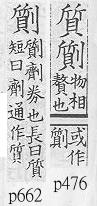 質劕
物相
贅也
或作
劕
p476
劕
劕劑券也長曰質
短曰劑通作質
p662